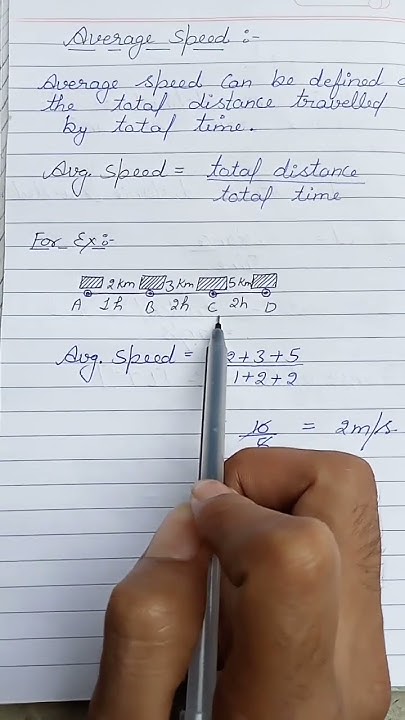 Average Speed :-
Average speed can be defined a
the total distance travelled
by total time.
Avg. Speed = total distance
total time
For Ex:-
2 km 3 km 5 km
A 1h B 2h C 2h D
Avg. Speed = 2+3+5
1+2+2
10 = 2m/s